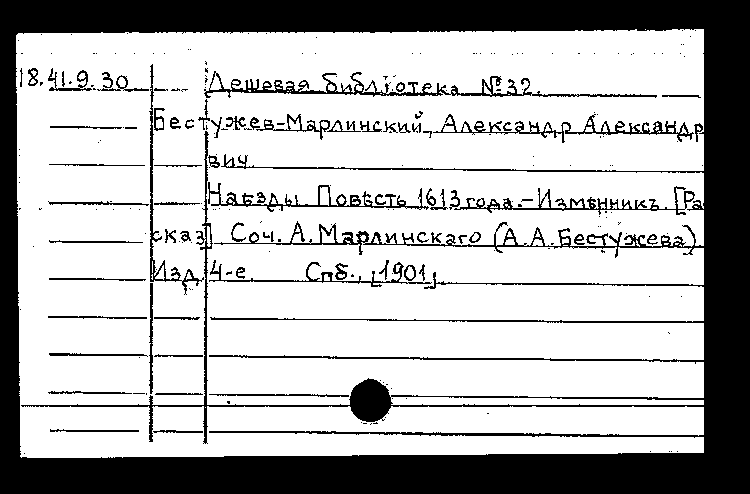 18.41.9.30 Дешевая библіотека №32.
Бестужев-Марлинский, Александр Александр
вич.
Наезды. Повѣсть 1613 года.-Измѣнникъ. [Ра
сказ]. Соч. А. Марлинскаго (А.А.Бестужева).
Изд. 4-е. Спб., [1901].